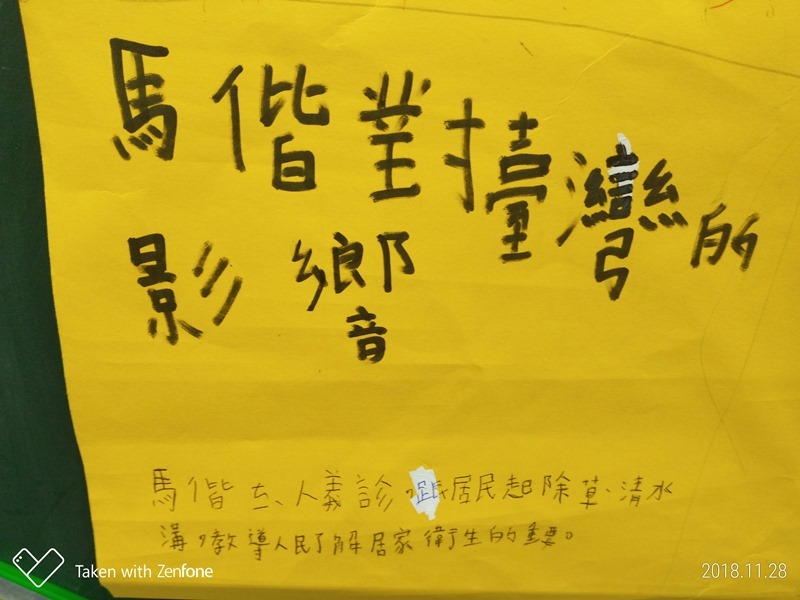 馬偕對臺灣所
影響
馬偕人義診,跟居民起除草、清水
溝,教導人民了解居家衛生的重要。
Taken with Zenfone
2018.11.28